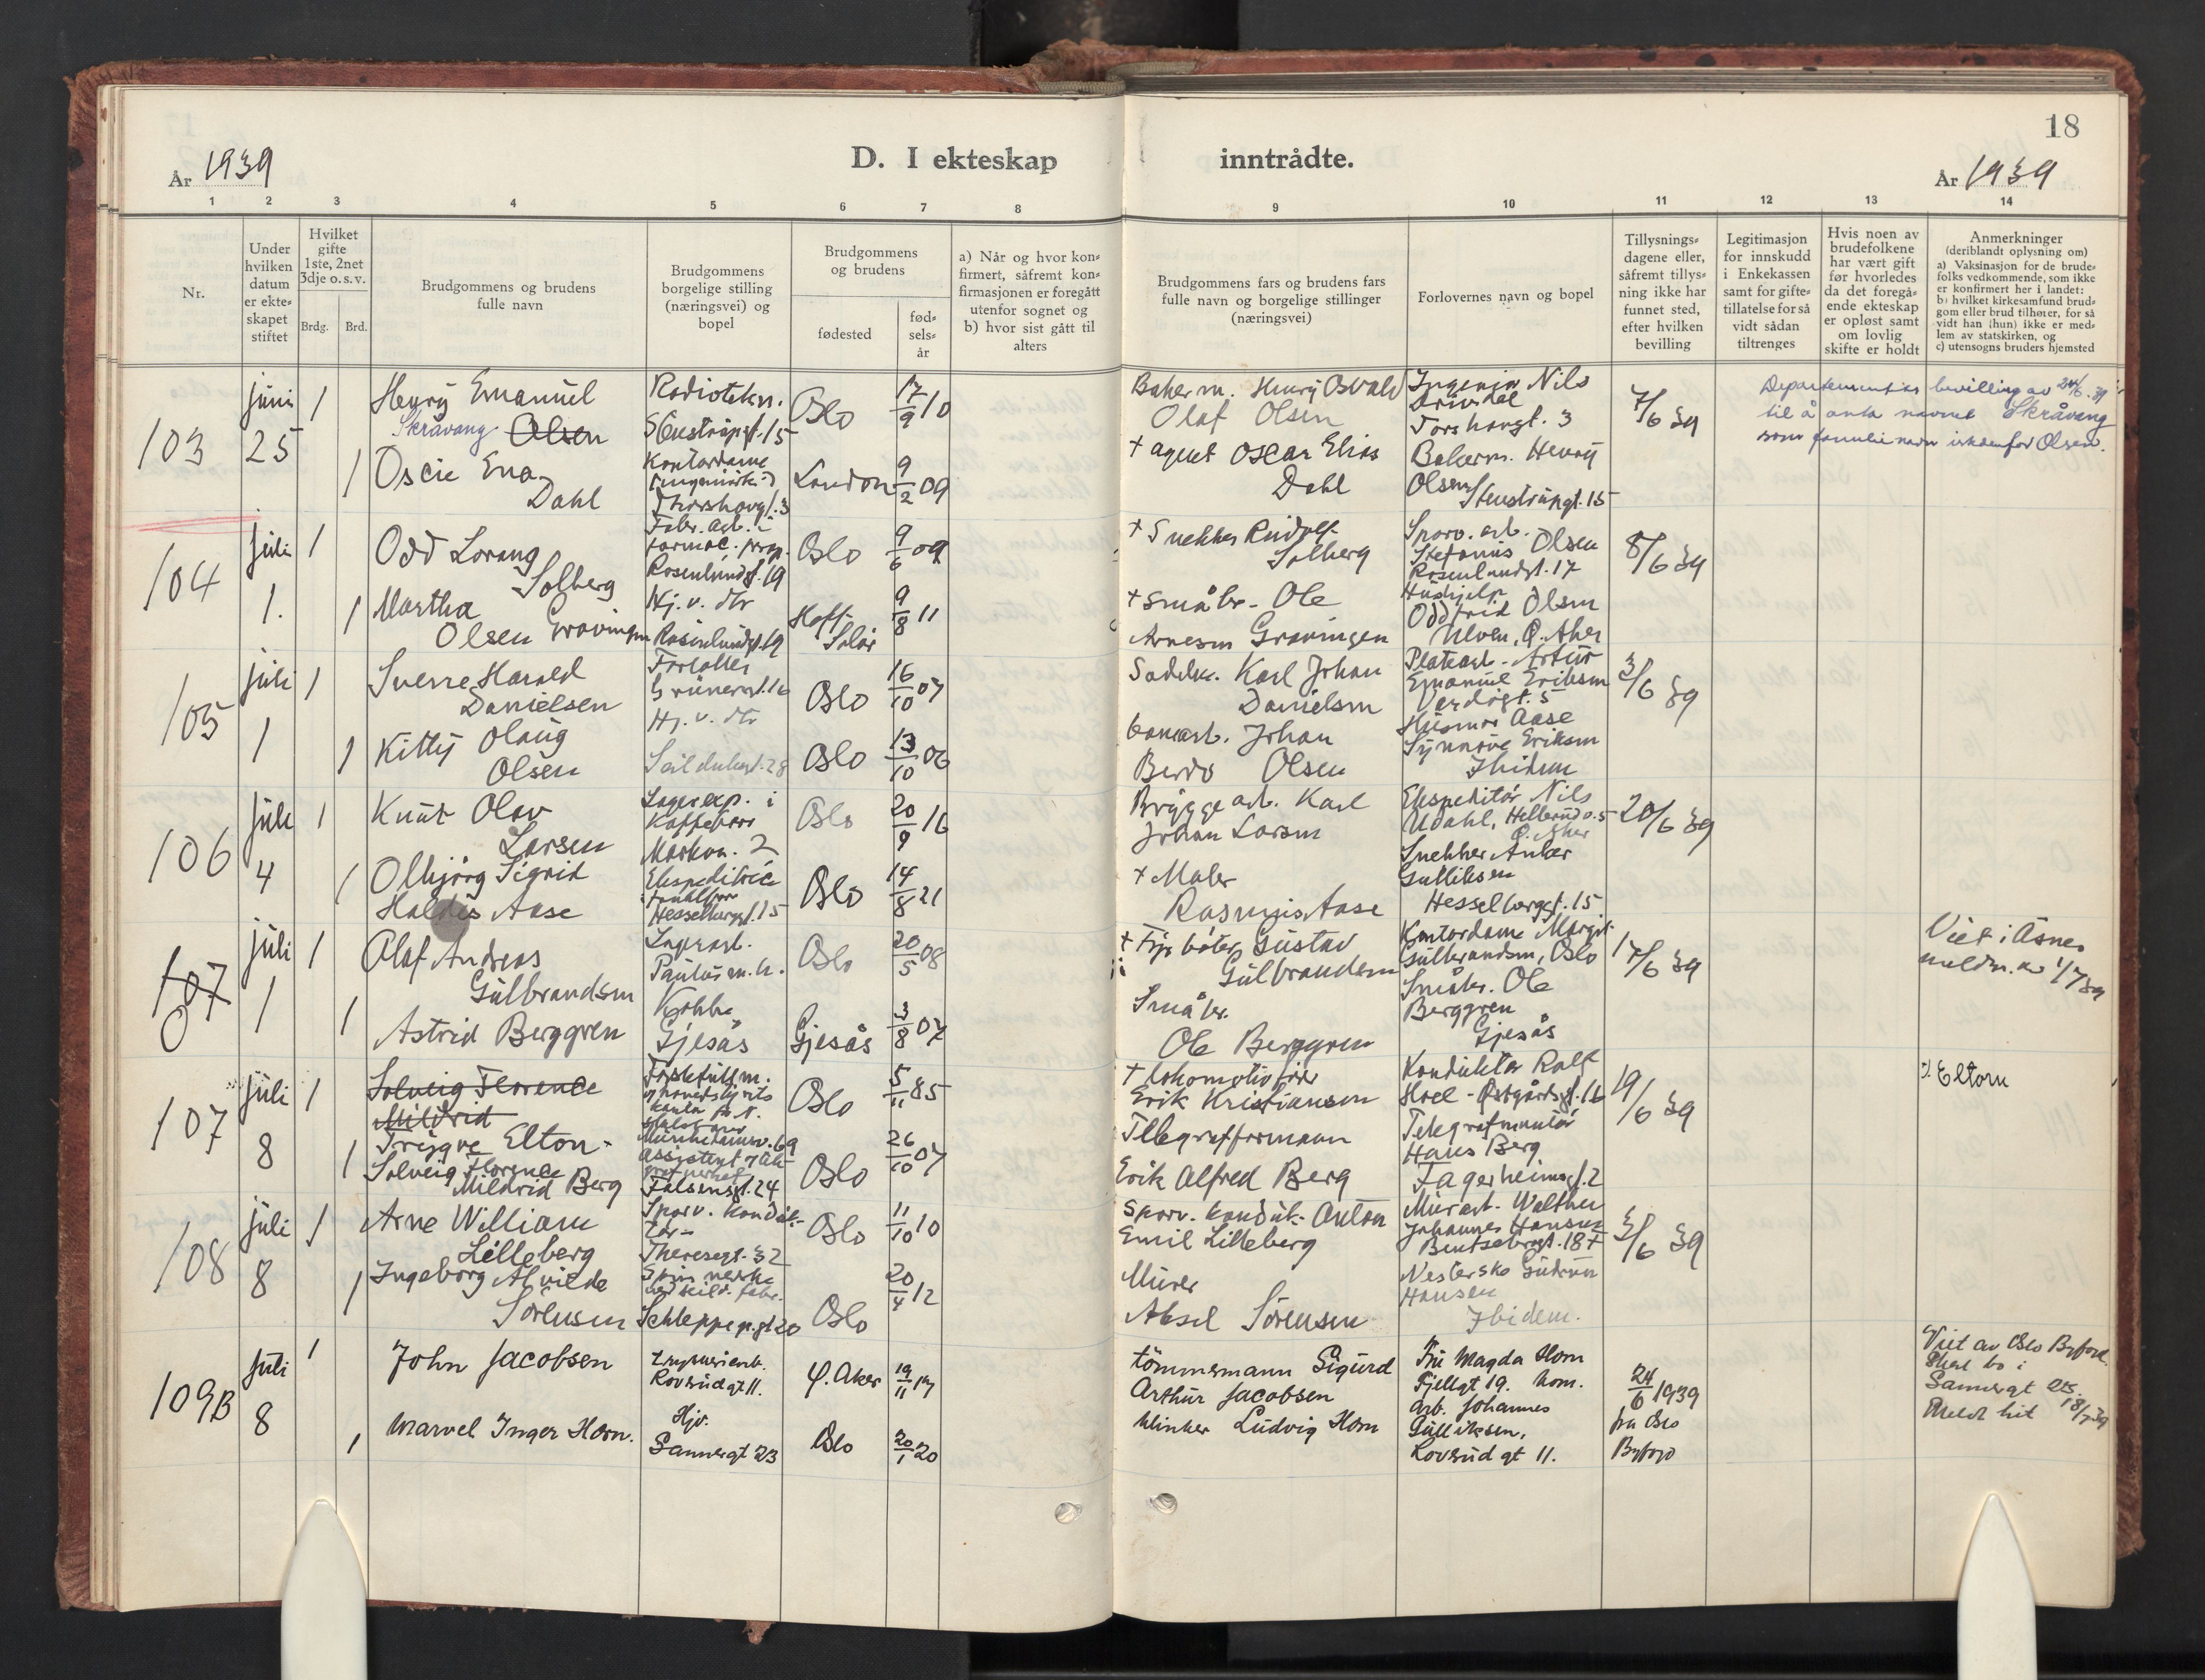 18
År 1939
D. I ekteskap inntrådte.
År 1939
1 2 3 4 5 6 7 8 9 10 11 12 13 14
Nr.
Under hvilken datum er ekte=skapet stiftet
Hvilket gifte 1ste, 2net 3dje o.s.v.
Brdg. Brd.
Brudgommens og brudens fulle navn
Brudgommens borgelige stilling (næringsvei) og bopel
Brudgommens og brudens
fødested
fød=sels=år
a) Når og hvor kon=firmert, såfremt kon=firmasjonen er foregått utenfor sognet og b) hvor sist gått til alters
Brudgommens fars og brudens fars fulle navn og borgelige stillinger (næringsvei)
Forlovernes navn og bopel
Tillysnings=dagene eller, såfremt tillys=ning ikke har funnet sted, efter hvilken bevilling
Legitimasjon for innskudd i Enkekassen samt for gifte=tillatelse for så vidt sådan tiltrenges
Hvis noen av brudefolkene har vært gift før hvorledes da det foregå=ende ekteskap er opløst samt om lovlig skifte er holdt
Anmerkninger (deriblandt oplysning om) a) Vaksinasjon for de brude=folks vedkommende, som ikke er konfirmert her i landet: b) hvilket kirkesamfund brud=gom eller brud tilhører, for så vidt han (hun) ikke er med=lem av statskirken, og c) utensogns bruders hjemsted
103 juni 25
1 Henry Emanuel
Skråvang Olsen
Radiotekn.
Stenstrupgt. 15
Oslo 17/9 10
Baker m. Henry Osvald
Olaf Olsen
Ingeniør Nils
Torshovgt. 3
7/6 39
Departementets bevilling av
til å anta navnet Skråvang
som familienavn istedenfor Olsen.
1 Oscie Ena
Dahl
Kontordame
Thorshovgt. 3
London 9/2 09
+ agent Oscar Elias
Dahl
Bakerm. Henry
Olsen Stenstrupgt. 15
104 juli 1.
1 Odd Lorang
Solberg
Fabr. arb. i
farmac. prep.
Rosenlundgt. 19
Oslo 9/6 09
+ Snekker Rudolf
Solberg
Sporv. arb.
Stefanus Olsen
Rosenlundgt. 17
8/6 39
1 Martha
Olsen Gravingen
Hj. v. dtr
Rosenlundgt. 19
Hoff Solør
9/8 11
+ småbr. Ole
Arnesen Gravingen
Hushjelp
Oddfrid Olsen
Ulven, Ø. Aker
105 juli 1
1 Sverre Harald
Danielsen
Forgyller
Grünersgt. 16
Oslo 16/10 07
Sadelm. Karl Johan
Danielsen
Platearb. Artur
Emanuel Eriksen
Verdigt. 5
3/6 39
1 Kitty Olaug
Olsen
Hj. v. dtr
Seilduksgt. 28
Oslo 13/10 06
Johan
Berdo Olsen
Husmor Aase
Synnøve Eriksen
Ibidem
106 juli 4
1 Knut Olav
Larsen
Lagerexp. i
Kaffeforr
Markvn. 2
Oslo 20/9 16
Brygge arb. Karl
Johan Larsen
Ekspeditør Nils
Udahl, Hellerudv. 5
Ø. Aker
20/6 39
1 Olbjørg Sigrid
Haldis Aase
Ekspeditrice
Hesselbergt. 15
Oslo 14/8 21
+ Maler
Rasmus Aase
Snekker Anker
Gulliksen
Hesselbergt. 15
107 0 juli 1
1 Olaf Andreas
Gulbrandsen
Lagerarb.
Paulus m.h.
Oslo 20/5 08
+ Fyrbøter Gustav
Gulbrandsen
Kontordame Margit
Gulbrandsen, Oslo
17/6 39
Viet i Åsnes
meldn. av 1/7 39
1 Astrid Berggren
Kokke
Gjesås
Gjesås 3/8 07
Småbr.
Ole Berggren
Småbr. Ole
Berggren
Gjesås
107 juli 8
1 Solveig Florence
Mildrid
Trygve Elton
Oslo 5/11 85
+ lokomotivfører
Erik Kristiansen
Konduktør Ralf
Hoel - Østgårdsgt. 16
19/6 39
Eltorn
1 Solveig Florence
Mildrid Berg
Falsensgt. 24
Oslo 26/10 07
Telegrafformann
Erik Alfred Berg
Telegrafmontør
Hans Berg
Fagerheimsgt. 2
108 juli 8
1 Arne William
Lilleberg
Sporv. konduk-
tør
Theresegt. 32
Oslo 11/10 10
Sporv. konduk. Anton
Emil Lilleberg
Murarb. Walther
Johannes Hansen
Bentsebrugt. 18
3/6 39
1 Ingeborg Alvilde
Sörensen
Schleppegr.gt 20
Oslo 20/4 12
Murer
Aksel Sörensen
Gudrun
Hansen
Ibidem.
109B juli 8
1 John Jacobsen
Rovsudgt 11.
Ø. Aker 19/11 17
tömmermann Sigurd
Arthur Jacobsen
Fru Magda Horn
Fjellgt 19.
24/6 1939
fra Oslo
Byfogd
Viet av Oslo Byford.
Skal bo i
Sannergt 23
Meldt hit 18/7 39
1 Marvel Inger Horn.
Hjv.
Sannergt 23
Oslo 20/1 20
klinker Ludvig Horn
arb. Johannes
Gulliksen,
Rovsud gt 11.